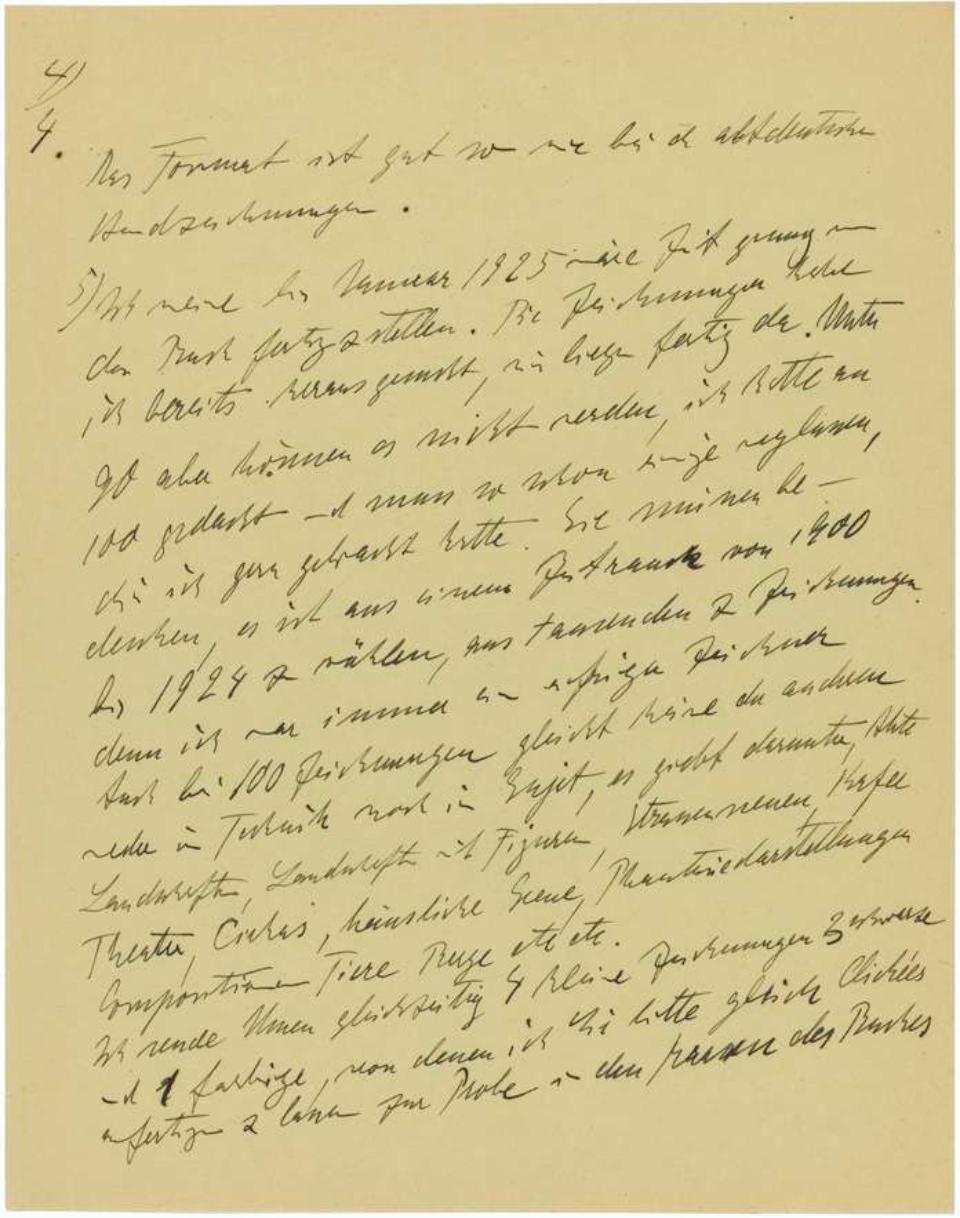 4)
4.
Das Format ist gut so wie bei de altdeutschen
Handzeichnungen.
5) Ich meine bis Januar 1925 wäre Zeit genug um
das Buch fertigzustellen. Die Zeichnungen habe
ich bereits herausgesucht, sie liegen fertig da. Unter
90 aber können es nicht werden, ich hatte an
100 gedacht und muss so schon einige weglassen,
die ich gern gebracht hätte. Sie müssen be-
denken, es ist aus einem Zeitraum von 1900
bis 1924 zu wählen, aus tausenden Zeichnungen
denn ich war immer ein eifriger Zeichner
Auch bei 100 Zeichnungen gleicht keine der anderen
weder in Technik noch in Sujet, es giebt darunter, Akte
Landschaften, Landschaften mit Figuren, Strassenscenen, Kafee
Theater, Cirkus, häusliche Scene, Phantasiedarstellungen
Compositionen Tiere Berge etc etc.
Ich sende Ihnen gleichzeitig 4 kleine Zeichnungen 3 schwarze
und 1 farbige, von denen ich Sie bitte gleich Clichées
anfertigen zu lassen zur Probe in den des Buches